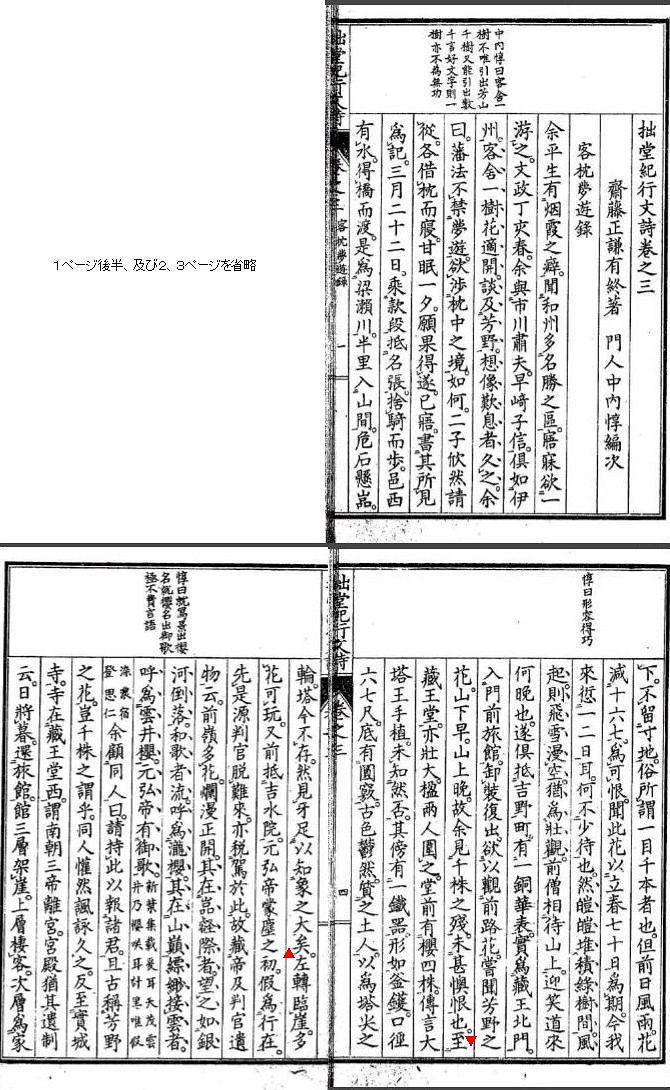 拙堂紀行文詩卷之三
齋藤正謙有終著　門人中內惇編次
客枕夢遊錄
余平生有烟霞之癖。聞和州多名勝之區。寤寐欲一
游之。文政丁亥春。余與市川肅夫。早崎子信。俱如伊
州。客舍一樹花適開。談及芳野。想像歎息者久之。余
曰。藩法不禁夢遊。欲涉枕中之境。如何。二子欣然請
從。各借枕而寢。甘眠一夕。願果得遂。已寤。書其所見
爲記。三月二十二日。乘款段抵名張。捨騎而步。邑西
有水。得橋而渡。是爲梁瀨川。半里入山間。危石懸嵓。
中內惇曰客舍一
樹不唯引出芳山
千樹又能引出數
千言好文字則一
樹亦不爲無功
拙堂紀行文詩
卷之三
客枕夢遊錄
一
1ページ後半、及び2、3ページを省略
惇曰形容得巧
下。不留寸地。俗所謂一目千本者也。但前日風雨。花
減十六七。爲可恨。聞此花以立春七十日爲期。今我
來愆一二日耳。何不少待也。然皚皚堆積綠樹間。風
起。則飛雪漫空。猶爲壯觀。前僧相待山上。迎笑道來
何晚也。遂俱抵吉野町。有一銅華表。實爲藏王北門。
入門前旅館。卸裝復出。欲以觀前路花。嘗聞芳野之
花。山下早。山上晚。故余見千株之殘。未甚懊恨也。至
藏王堂。亦壯大。楹兩人圍之。堂前有櫻四株。傳言大
塔王手植。未知然否。其傍有一鐵器。形如釜鑊。口徑
六七尺。底有圓竅。古色鬱然。質之土人。以爲塔尖之
拙堂紀行文詩
卷之三
四
輪。塔今不存。然見牙足以知象之大矣。左轉臨崖。多
花可玩。又前抵吉水院。元弘帝蒙塵之初。假爲行在。
先是源判官脫難來。亦稅駕於此。故藏帝及判官遺
物云。前嶺多花。爛漫正開。其在嵓經際者。望之如銀
河倒落。和歌者流。呼爲瀧櫻。其在山巔。縹緲接雲者。
呼爲雲井櫻。元弘帝有御歌。新葉集載爰耳天茂雲
井乃櫻咲耳計里唯假
染農宿
登思仁余顧同人曰。請持此以報諸君。且古稱芳野
之花。豈千株之謂乎。同人懽然諷詠久之。反至實城
寺。寺在藏王堂西。謂南朝三帝離宮。宮殿猶其遺制
云。日將暮。還旅館。館三層架崖。上層棲客。次層爲家
惇曰就寫景出櫻
名就櫻名出御歌
極不費言語